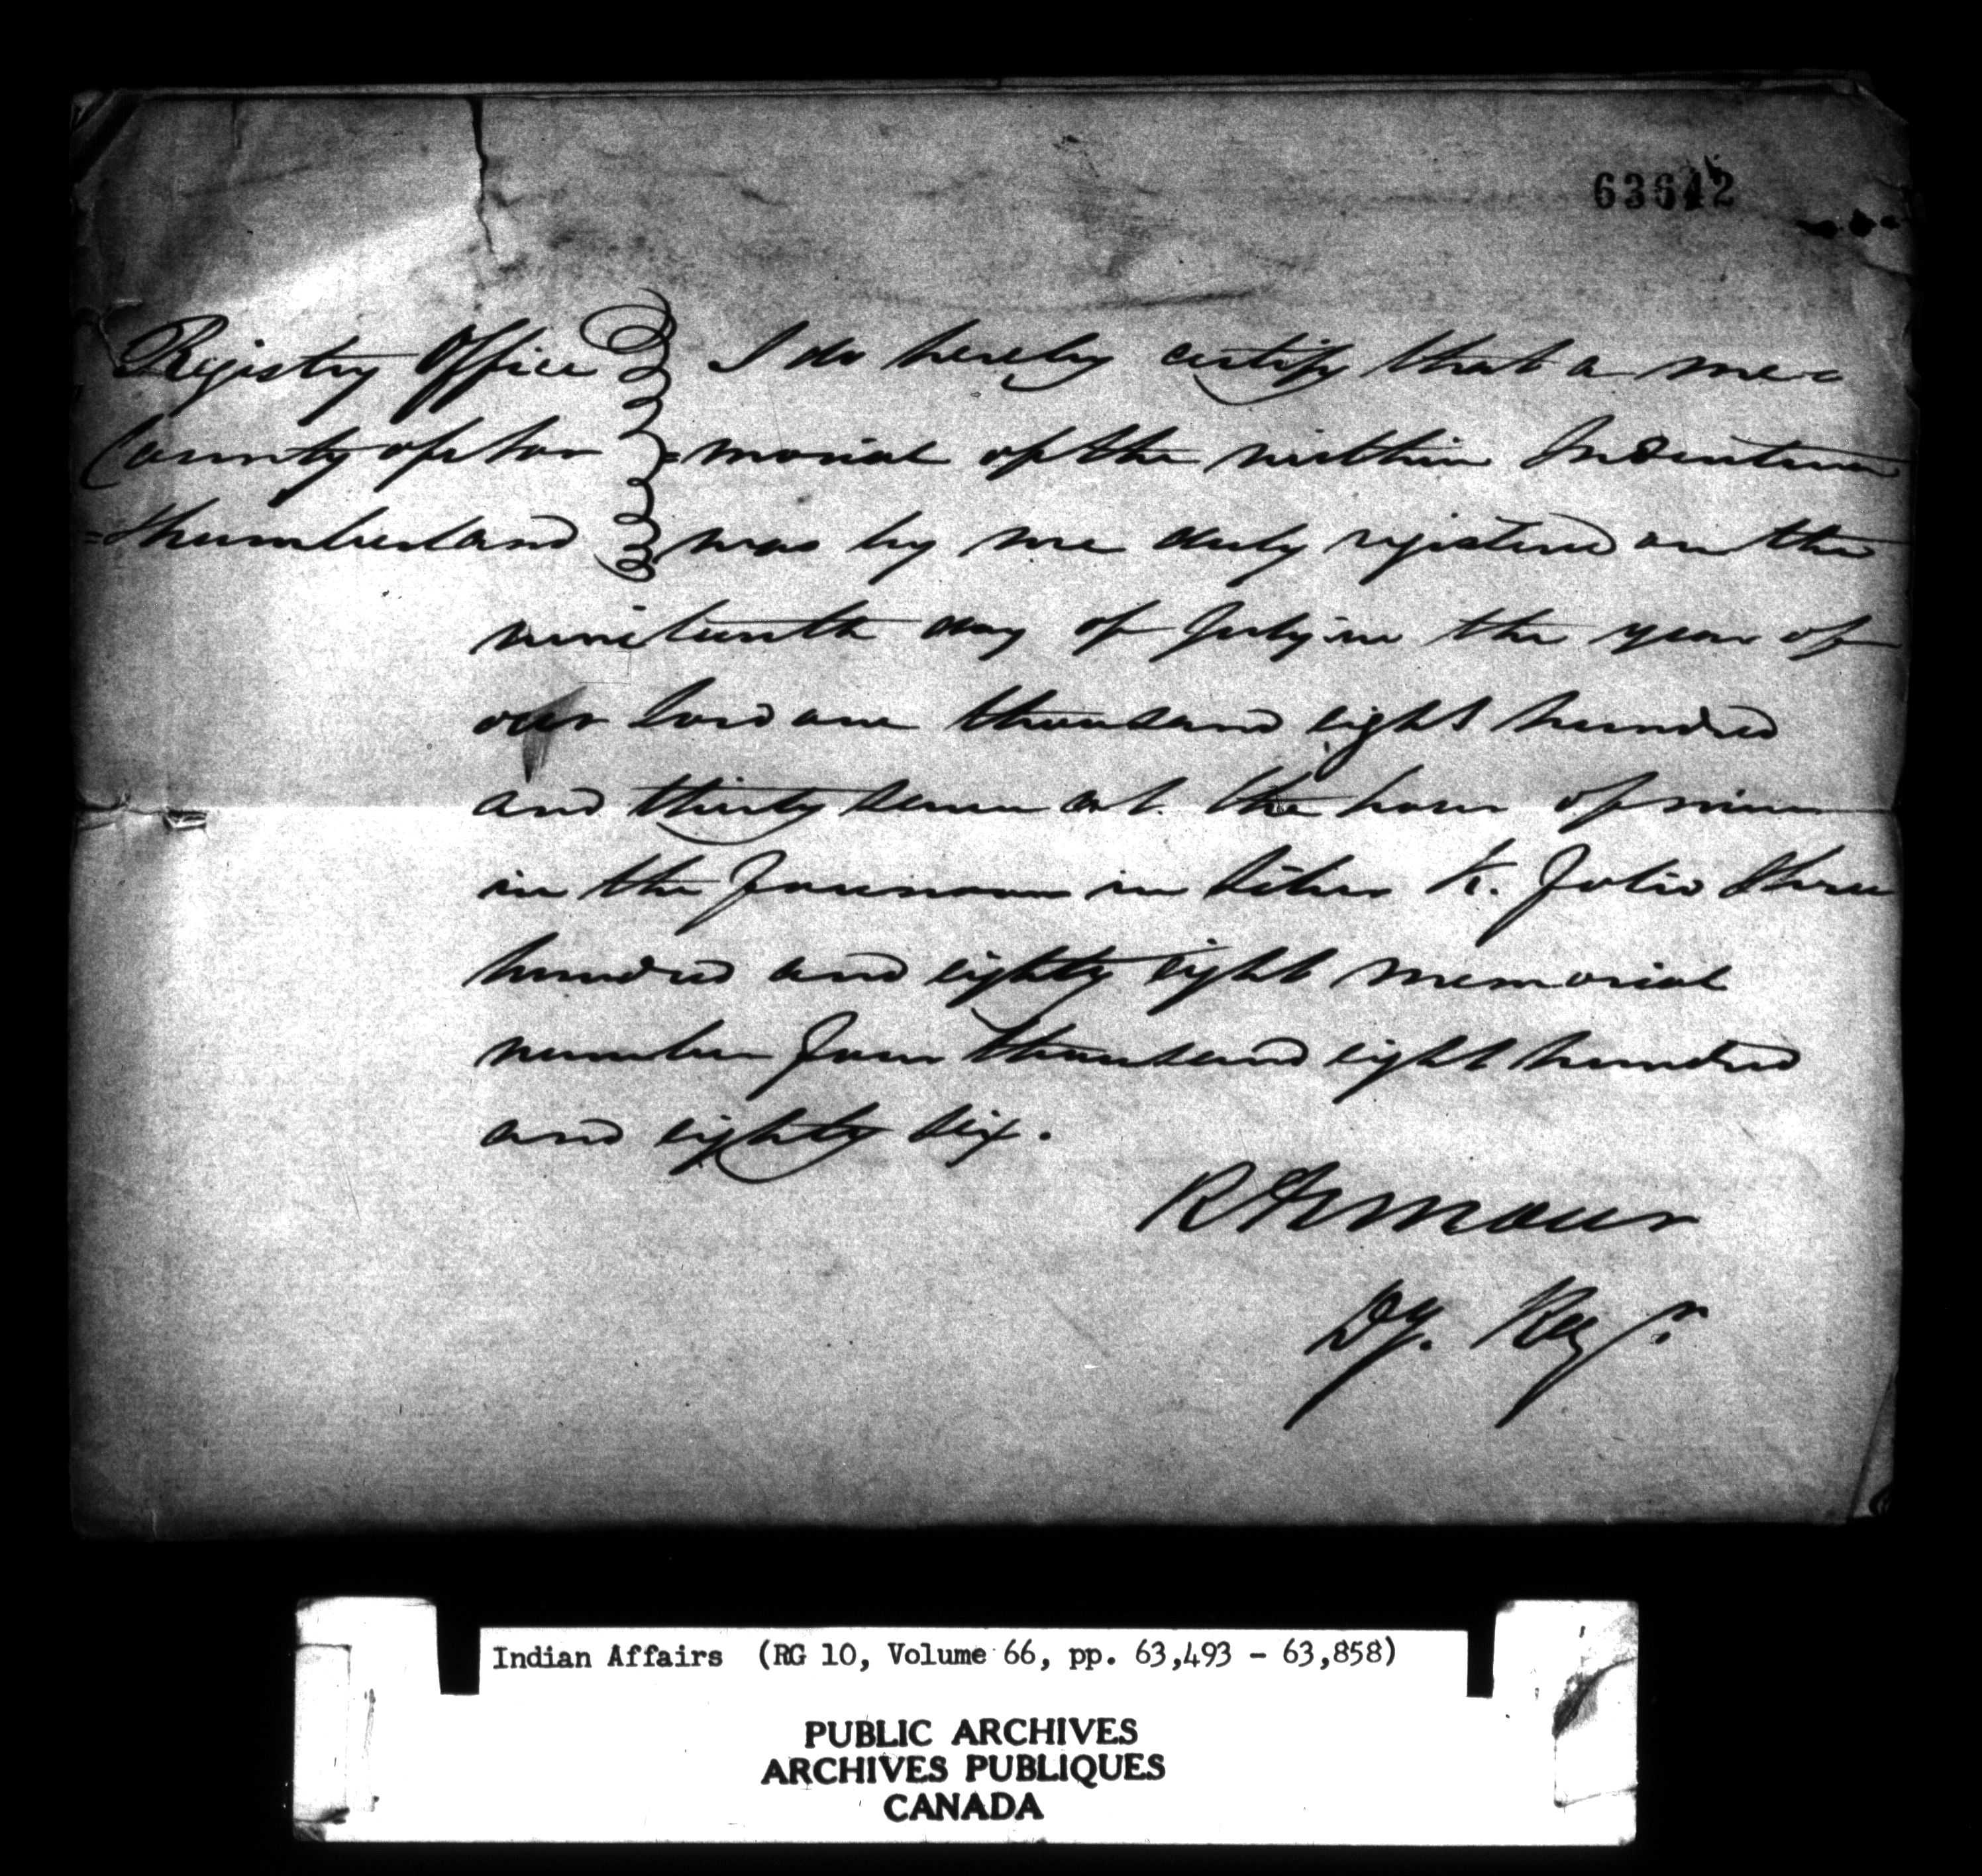 63642
Registry Office
County of Nor
=thumberland
I do hereby certify that a me=
=morial of the within Indenture
was by me duly registered on the
nineteenth day of July in the year of
our Lord one thousand eight hundred
and thirty seven at the hour of nine
in the forenoon in Liber K. folio three
hundred and eighty eight memorial
number four thousand eight hundred
and eighty six.
R Armour
Dy. Regr.
Indian Affairs (RG 10, Volume 66, pp. 63,493 - 63,858)
PUBLIC ARCHIVES
ARCHIVES PUBLIQUES
CANADA